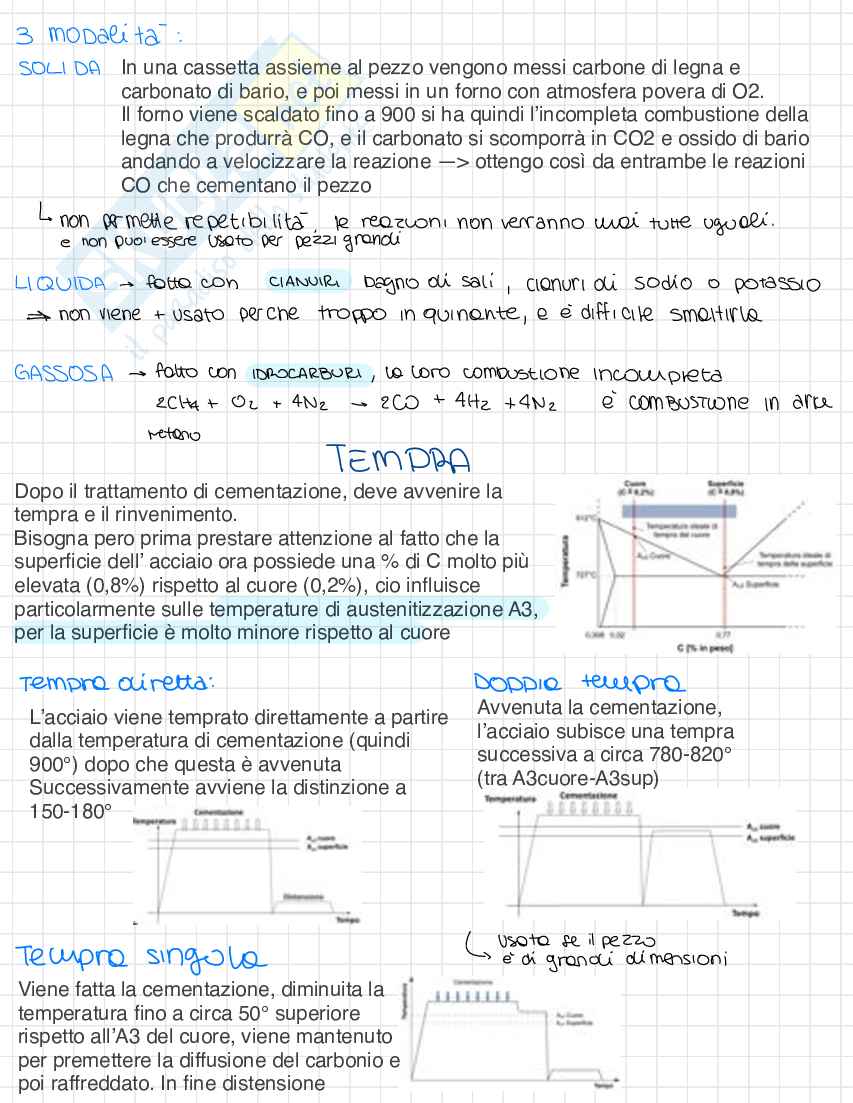 3 modalità:
SOLIDA In una cassetta assieme al pezzo vengono messi carbone di legna e
carbonato di bario, e poi messi in un forno con atmosfera povera di O2.
Il forno viene scaldato fino a 900 si ha quindi l'incompleta combustione della
legna che produrrà CO, e il carbonato si scomporrà in CO2 e ossido di bario
andando a velocizzare la reazione —> ottengo così da entrambe le reazioni
CO che cementano il pezzo
↳ non permette repetibilità, le reazioni non verranno mai tutte uguali.
e non puoi essere usato per pezzi grandi
LIQUIDA → fatta con CIANURI bagno di sali, cianuri di sodio o potassio
⇒ non viene + usato perche troppo inquinante, e è difficile smaltirla
GASSOSA → fatto con IDROCARBURI, la loro combustione incompleta
2CH4 + O2 + 4N2 → 2CO + 4H2 + 4N2 è combustione in aria
metano
TEMPRA
Dopo il trattamento di cementazione, deve avvenire la
tempra e il rinvenimento.
Bisogna pero prima prestare attenzione al fatto che la
superficie dell' acciaio ora possiede una % di C molto più
elevata (0,8%) rispetto al cuore (0,2%), cio influisce
particolarmente sulle temperature di austenitizzazione A3,
per la superficie è molto minore rispetto al cuore
Cuore Superficie
(C = 0,2%) (C = 0,8%)
912°C
Temperatura ideale di
tempra del cuore
Ac3 Cuore
Temperatura ideale di
tempra della superficie
727°C
Ac3 Superficie
Temperatura
0,02 0,77
C [% in peso]
Tempra diretta:
L'acciaio viene temprato direttamente a partire
dalla temperatura di cementazione (quindi
900°) dopo che questa è avvenuta
Successivamente avviene la distinzione a
150-180°
Cementazione
Temperatura
Ac3 cuore
Ac3 superficie
Distensione
Tempo
Doppia tempra
Avvenuta la cementazione,
l'acciaio subisce una tempra
successiva a circa 780-820°
(tra A3cuore-A3sup)
Temperatura Cementazione
Ac3 cuore
Ac3 superficie
Tempo
↳ usata se il pezzo
è di grandi dimensioni
Tempra singola
Viene fatta la cementazione, diminuita la
temperatura fino a circa 50° superiore
rispetto all'A3 del cuore, viene mantenuto
per premettere la diffusione del carbonio e
poi raffreddato. In fine distensione
Cementazione
Temperatura
Ac3 Cuore
Ac3 Superficie
Tempo
il paradiso dello studente